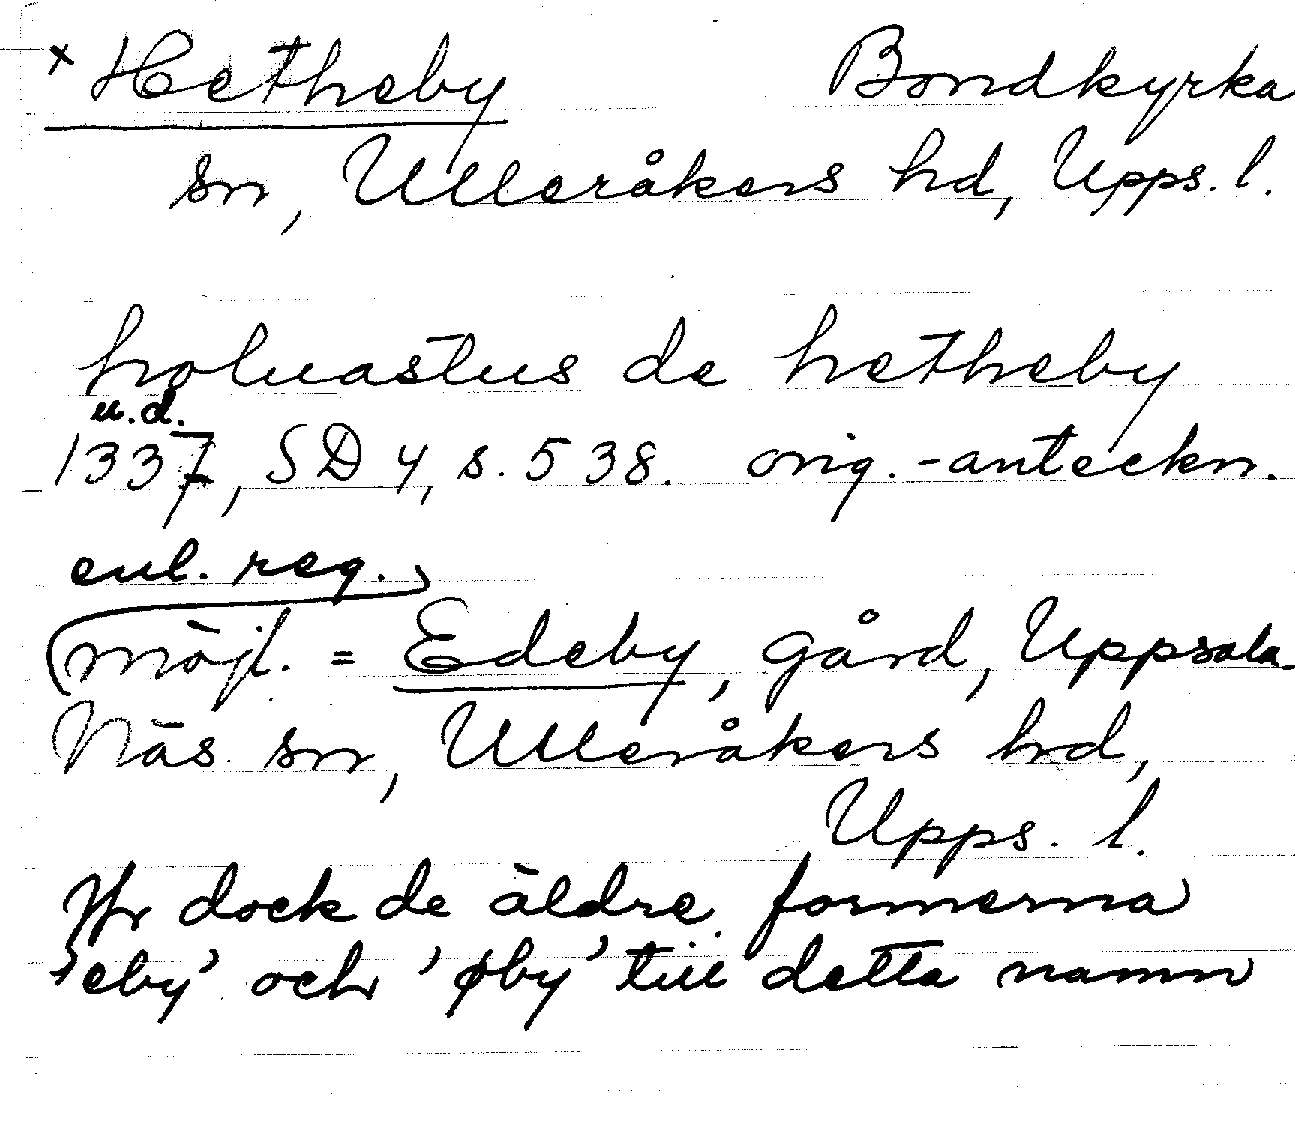 x Hetheby Bondkyrka
sn, Ulleråkers hd, Upps. l.
holuastus de hetheby
u.d.
1337, SD 4, s. 538. orig.-anteckn.
enl. reg.
möjl. = Edeby, gård, Uppsala-
Näs sn, Ulleråkers hd,
Upps. l.
Jfr dock de äldre formerna
'eby' och 'øby' till detta namn